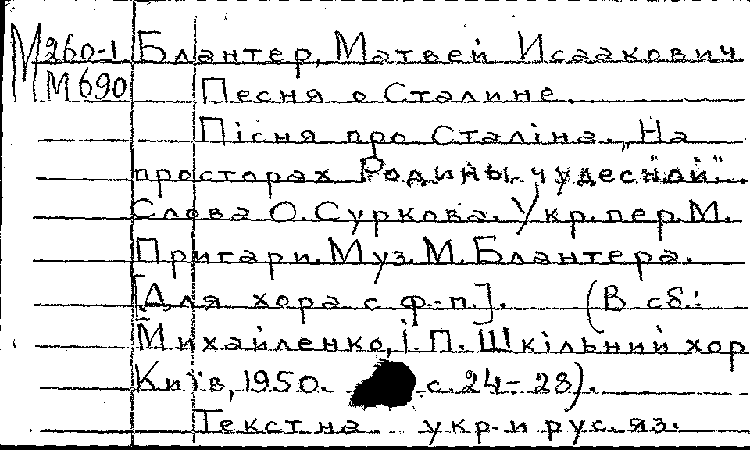 М260-1 Блантер, Матвей Исаакович
М690 Песня о Сталине.
Пісня про Сталіна. „На
просторах Родины чудесной".
Слова О. Суркова. Укр. пер. М.
Пригари. Муз. М. Блантера.
[Для хора с ф-п.]. (В сб.:
Михайленко, І. П. Шкільний хор
Київ, 1950. с. 24-28).
Текст на укр. и рус. яз.